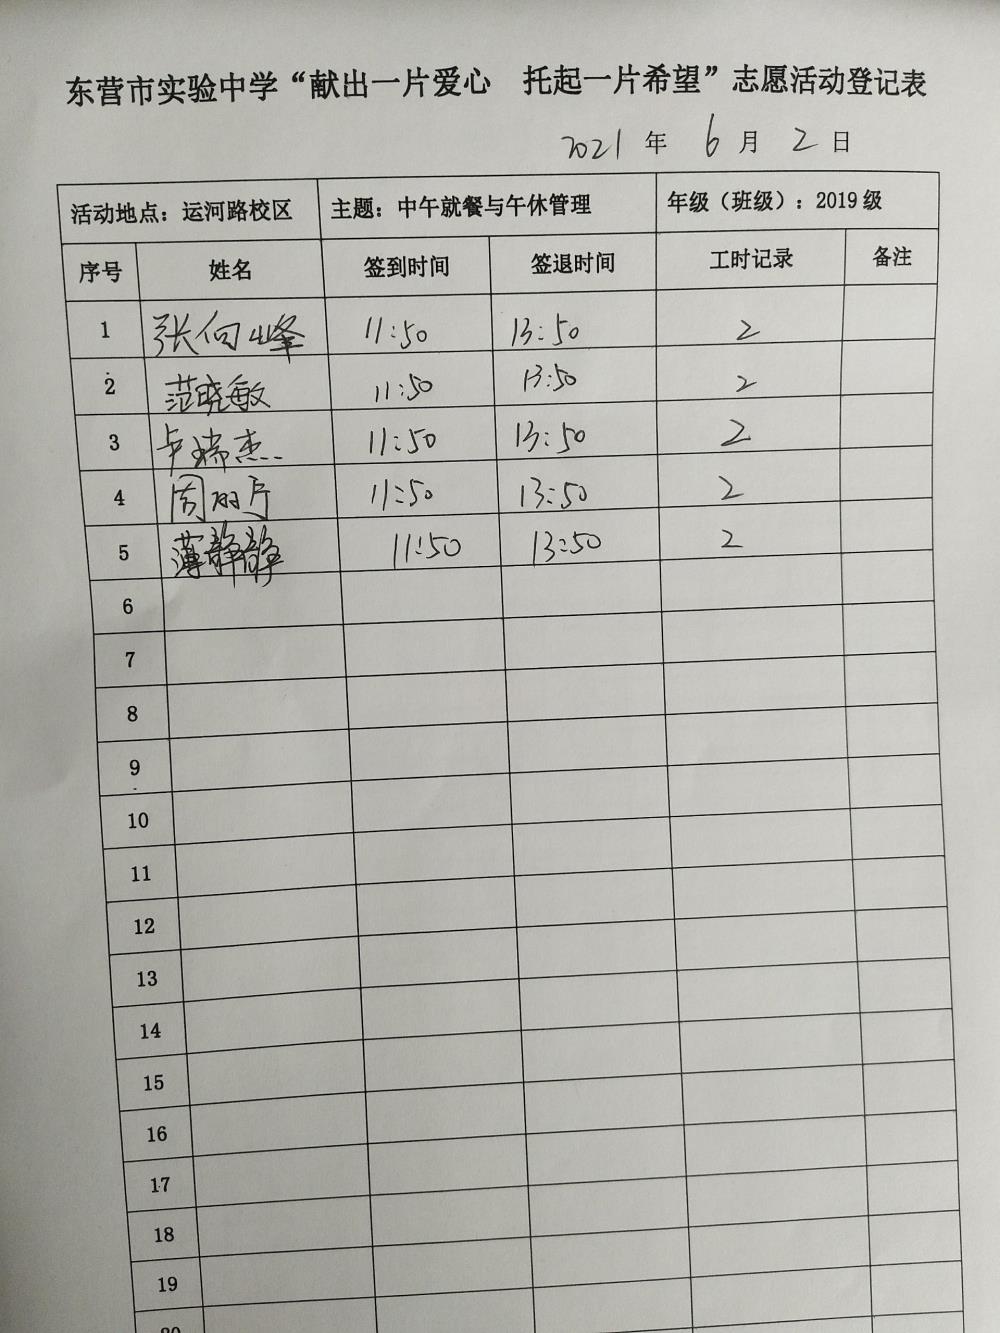 东营市实验中学“献出一片爱心 托起一片希望”志愿活动登记表
2021 年 6 月 2 日
活动地点：运河路校区 主题：中午就餐与午休管理 年级（班级）：2019 级
序号 姓名 签到时间 签退时间 工时记录 备注
1 张向峰 11:50 13:50 2
2 范晓敏 11:50 13:50 2
3 卢瑞杰 11:50 13:50 2
4 周丽 11:50 13:50 2
5 薄静静 11:50 13:50 2
6
7
8
9
10
11
12
13
14
15
16
17
18
19
20